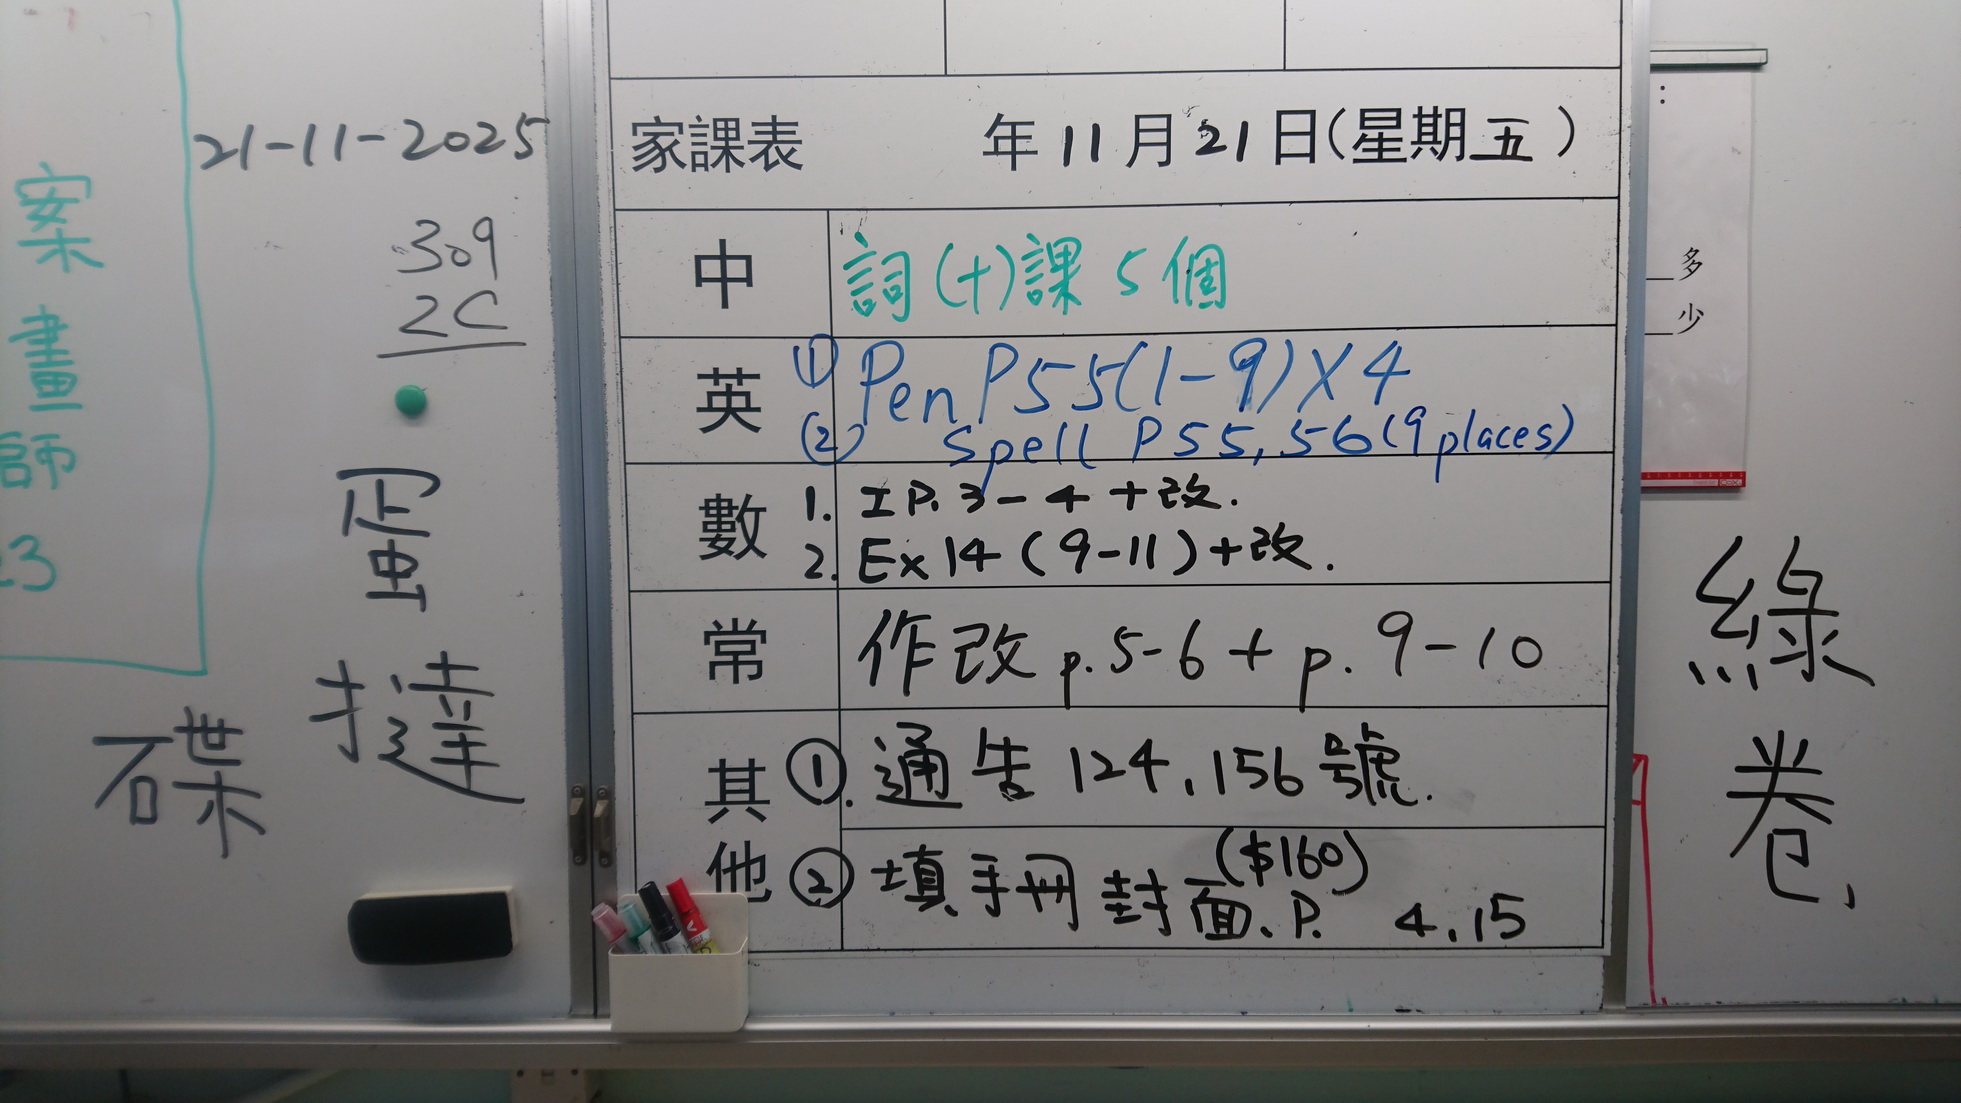 案
畫
師
21-11-2025
309
2C
蛋
撻
碟
家課表 年11月21日(星期五)
中 詞(十)課5個
英 ① Pen P55(1-9)X4
(2) Spell P55,56(9places)
數 1. I P.3-4+改.
2. Ex14(9-11)+改.
常 作改p.5-6+p.9-10
其他 ①. 通告124,156號.
② 填手冊封面、P. 4,15
($160)
:
多
少
綠
卷